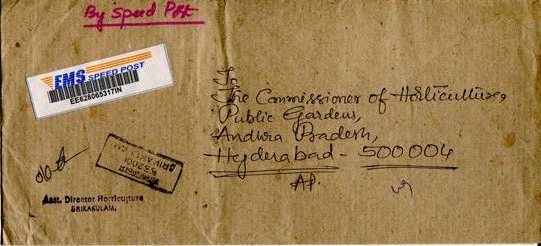 By Speed Post
EMS SPEED POST
EE628065317IN
To
The Commissioner of Horticulture,
Public Gardens,
Andhra Pradesh,
Hyderabad - 500004
AP.
Asst. Director Horticulture
SRIKAKULAM.